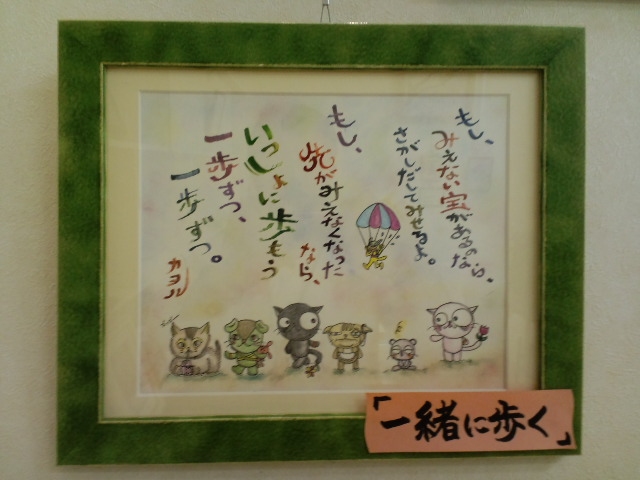 もし、
みえない宝があるのなら、
さがしだしてみせるよ。
もし、
先がみえなくなった
なら、
いっしょに歩もう
一歩ずつ、
一歩ずつ。
カヨル
「一緒に歩く」